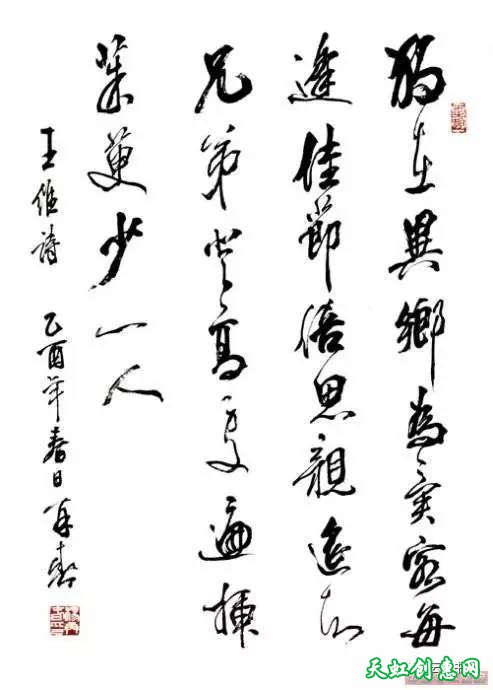 獨在異鄉為異客每
逢佳節倍思親遥知
兄弟登高處遍插
茱萸少一人
王維詩 乙酉年春日
天虹创意网